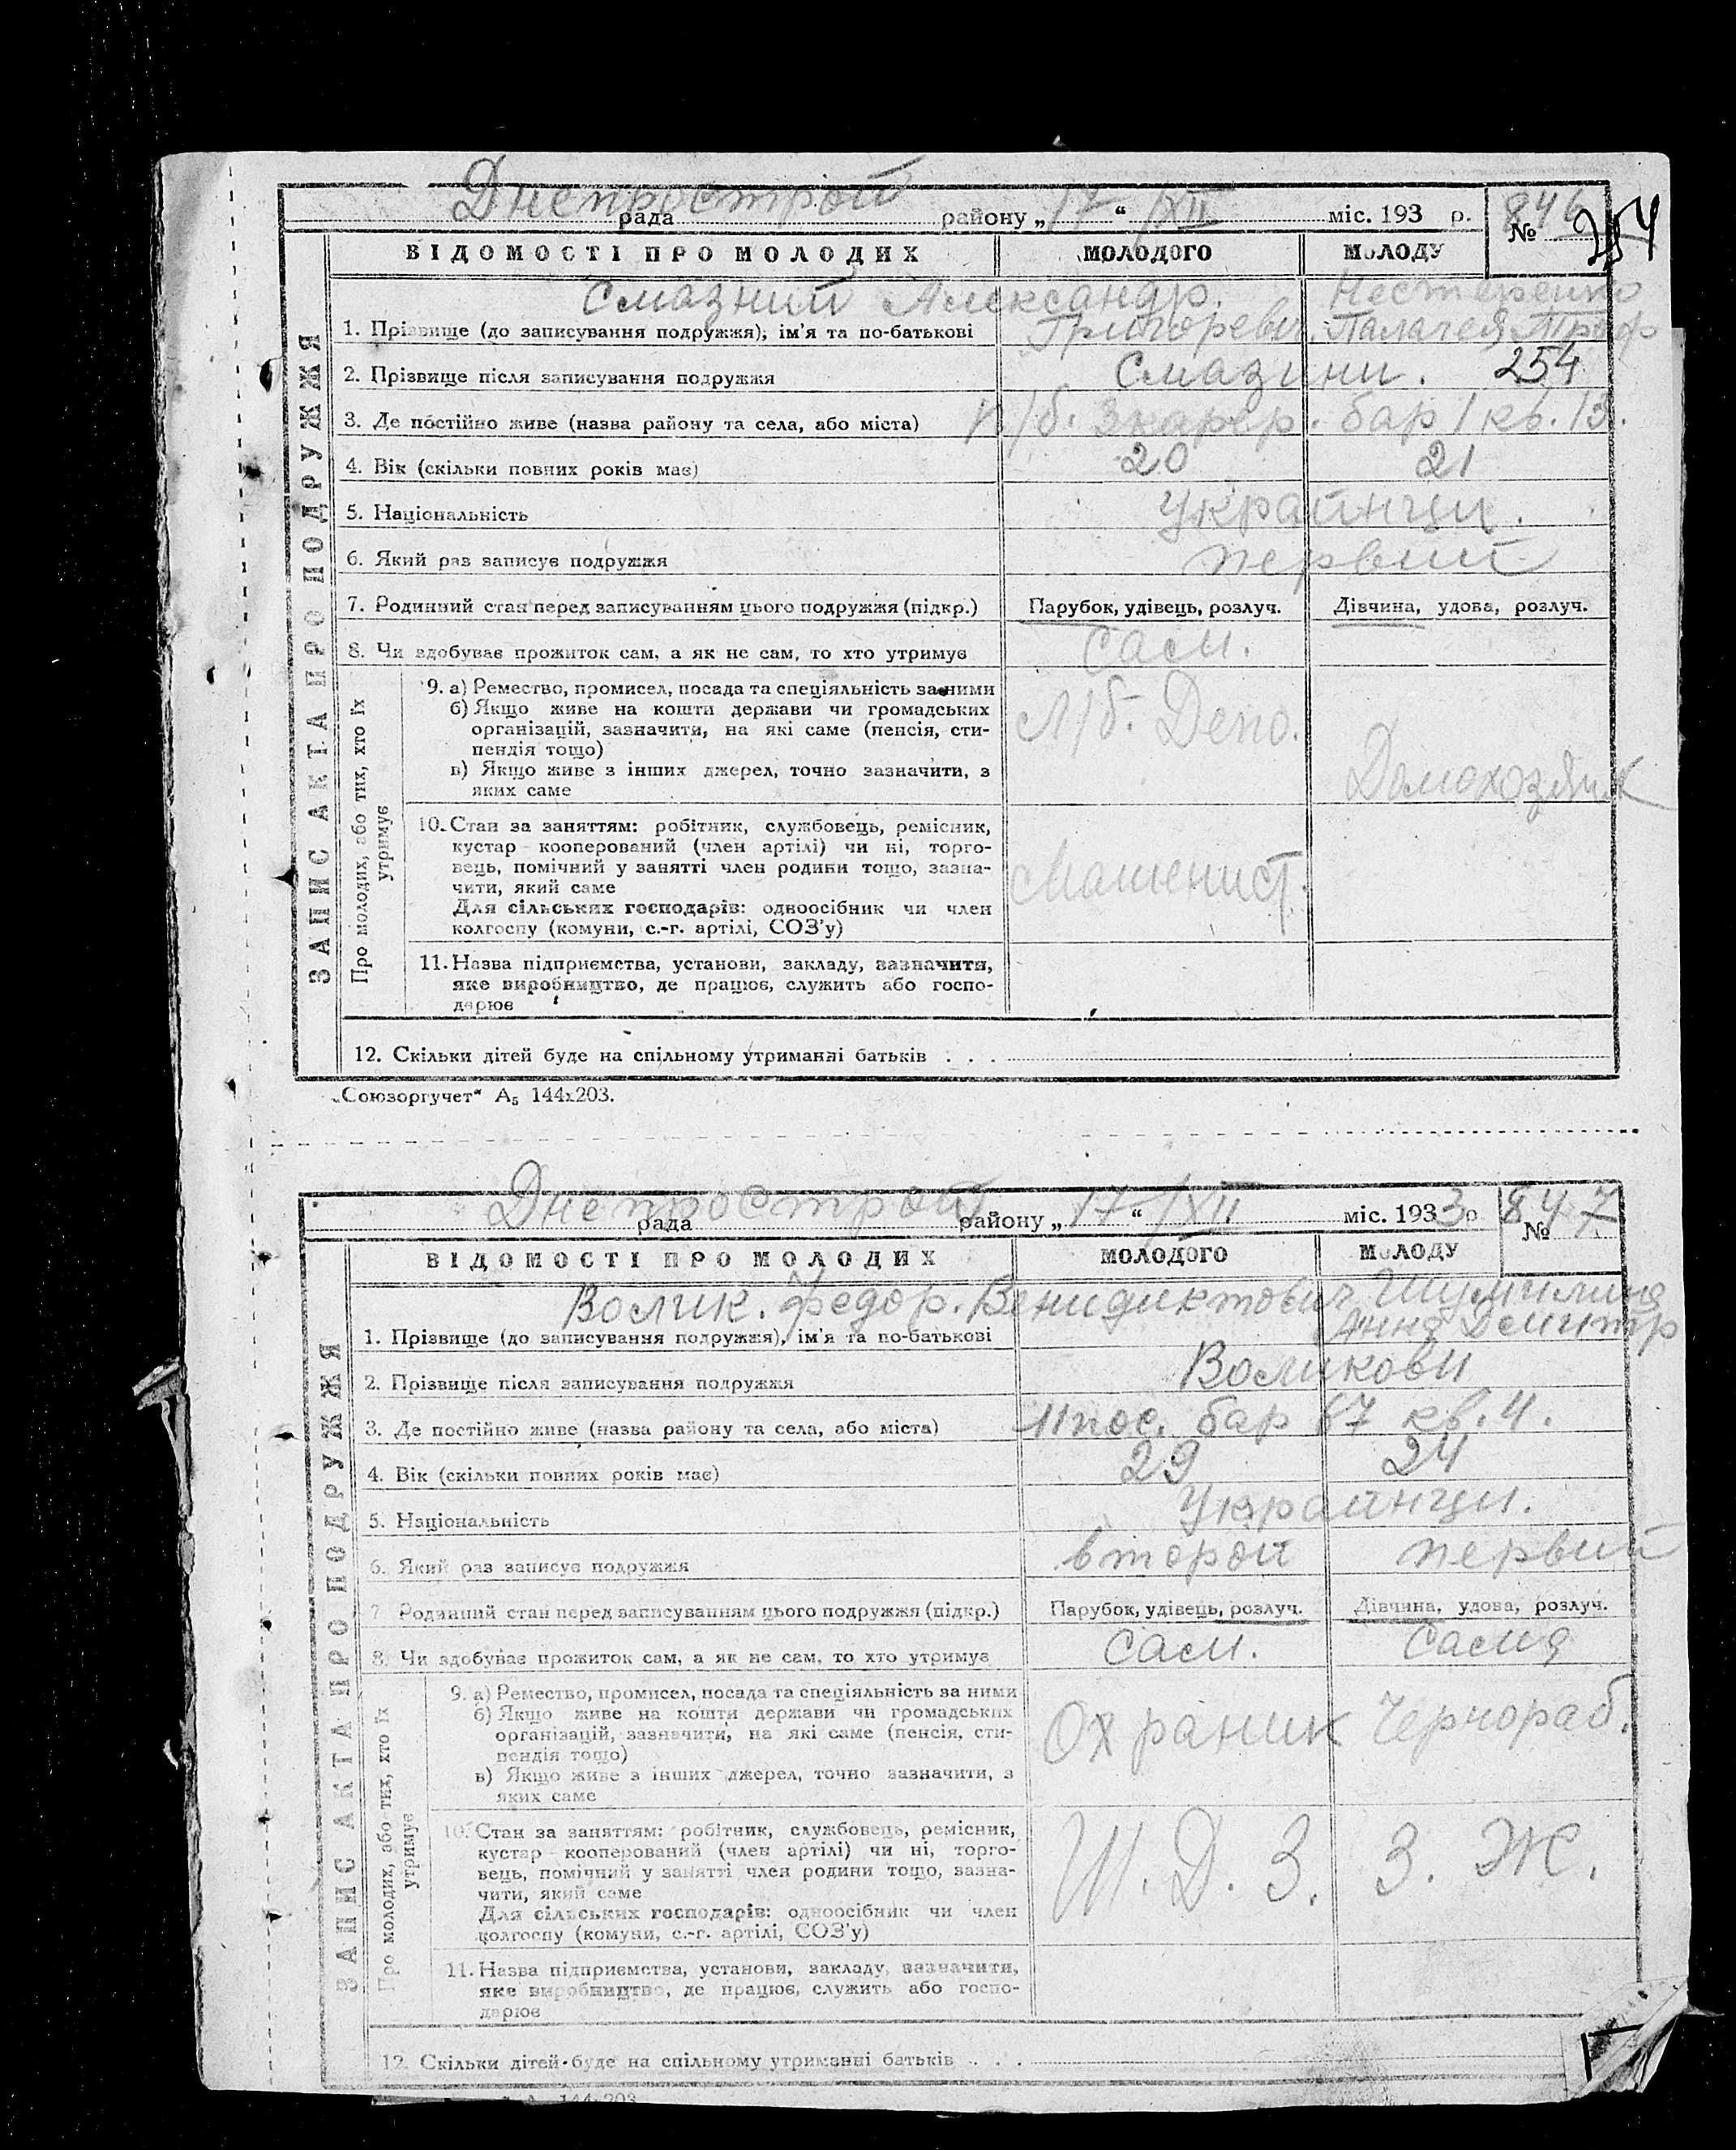 Днепрострой
рада району „17“ /XII міс. 193 р. № 846
254
ВІДОМОСТІ ПРО МОЛОДИХ МОЛОДОГО МОЛОДУ
Смазний Александр. Нестеренко
1. Прізвище (до записування подружжя), ім'я та по-батькові Григоревич. Палагея Троф
2. Прізвище після записування подружжя Смазни. 254
3. Де постійно живе (назва району та села, або міста) бар 1 кв. 13.
4. Вік (скільки повних років має) 20 21
5. Національність Украйнци.
6. Який раз записує подружжя первий
7. Родинний стан перед записуванням цього подружжя (підкр.) Парубок, удівець, розлуч. Дівчина, удова, розлуч.
8. Чи здобуває прожиток сам, а як не сам, то хто утримує Сам.
ЗАПИС АКТА ПРО ПОДРУЖЖЯ
Про молодих, або тих, хто їх утримує
9. а) Ремество, промисел, посада та спеціяльність за ними
б) Якщо живе на кошти держави чи громадських
організацій, зазначити, на які саме (пенсія, сти-
пендія тощо)
в) Якщо живе з інших джерел, точно зазначити, з
яких саме
Л/б. Депо. Домохозяйк
10. Стан за заняттям: робітник, службовець, ремісник,
кустар кооперований (член артілі) чи ні, торго-
вець, помічний у занятті член родини тощо, зазна-
чити, який саме
Для сільських господарів: одноосібник чи член
колгоспу (комуни, с.-г. артілі, СОЗ'у)
Машенист.
11. Назва підприємства, установи, закладу, зазначити,
яке виробництво, де працює, служить або госпо-
дарює
12. Скільки дітей буде на спільному утриманні батьків . . .
„Союзоргучет“ А₅ 144х203.
Днепрострой
рада району „17“ /XII міс. 1933 р № 847
ВІДОМОСТІ ПРО МОЛОДИХ МОЛОДОГО МОЛОДУ
Волик. Федор. Венидиктович Шумилина
1. Прізвище (до записування подружжя), ім'я та по-батькові Анна Демитр
2. Прізвище після записування подружжя Воликови
3. Де постійно живе (назва району та села, або міста) 11 пос. бар 67 кв. 4.
4. Вік (скільки повних років має) 29 24
5. Національність Украйнци.
6. Який раз записує подружжя второй первий
7 Родинний стан перед записуванням цього подружжя (підкр.) Парубок, удівець, розлуч. Дівчина, удова, розлуч.
8. Чи здобуває прожиток сам, а як не сам, то хто утримує Сам. Сама
ЗАПИС АКТА ПРО ПОДРУЖЖЯ
Про молодих, або тих, хто їх утримує
9. а) Ремество, промисел, посада та спеціяльність за ними
б) Якщо живе на кошти держави чи громадських
організацій, зазначити, на які саме (пенсія, сти-
пендія тощо)
в) Якщо живе з інших джерел, точно зазначити, з
яких саме
Охраник Чернораб.
10. Стан за заняттям: робітник, службовець, ремісник,
кустар кооперований (член артілі) чи ні, торго-
вець, помічний у занятті член родини тощо, зазна-
чити, який саме
Для сільських господарів: одноосібник чи член
колгоспу (комуни, с.-г. артілі, СОЗ'у)
Ш. Д. З. З. Ж.
11. Назва підприємства, установи, закладу, зазначити,
яке виробництво, де працює, служить або госпо-
дарює
12. Скільки дітей буде на спільному утриманні батьків . . .